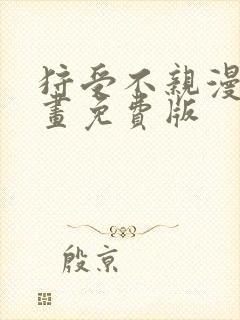 狩受不親漫
畫免費版
殷京